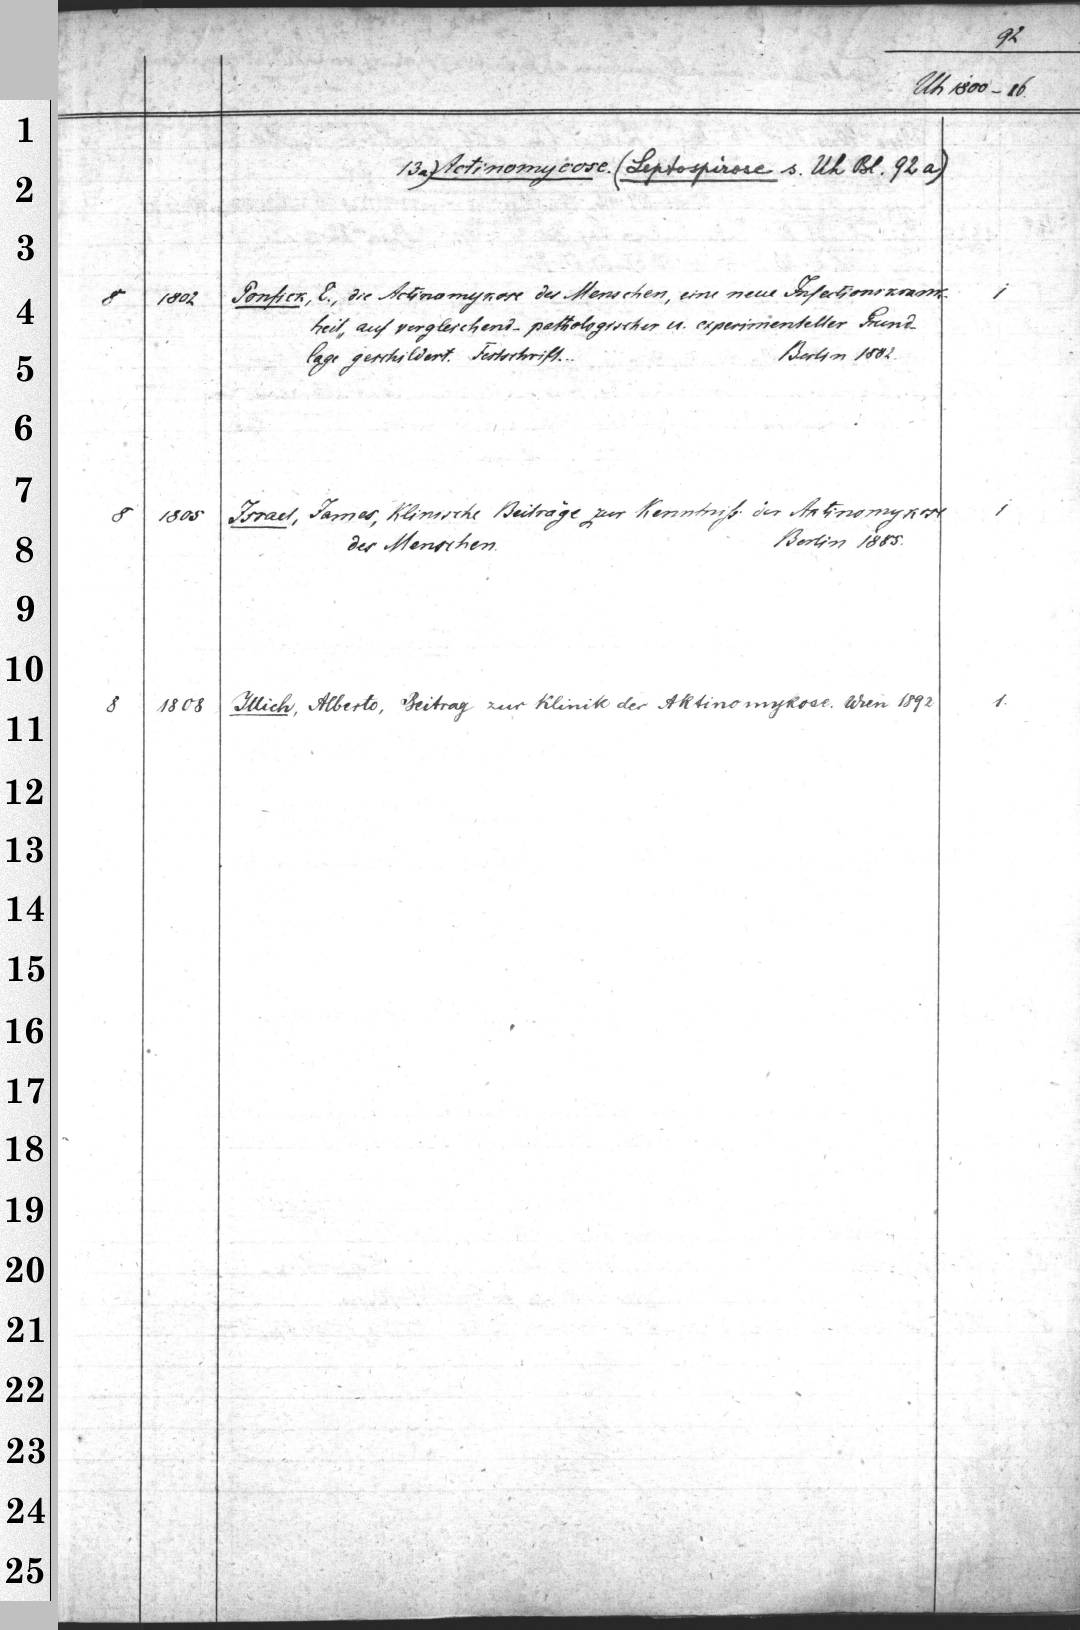 92
Uh 1800-16.
13a) Actinomycose. (Leptospirose s. Uh Bl. 92a)
8 1802 Ponfick, E., die Actinomykose des Menschen, eine neue Infectionskrank- 1
heit, auf vergleichend-pathologischer u. experimenteller Grund-
lage geschildert. Festschrift... Berlin 1882.
8 1805 Israel, James, Klinische Beiträge zur Kenntniß der Aktinomykose 1
des Menschen. Berlin 1885.
8 1808 Illich, Alberto, Beitrag zur Klinik der Aktinomykose. Wien 1892 1.
1
2
3
4
5
6
7
8
9
10
11
12
13
14
15
16
17
18
19
20
21
22
23
24
25